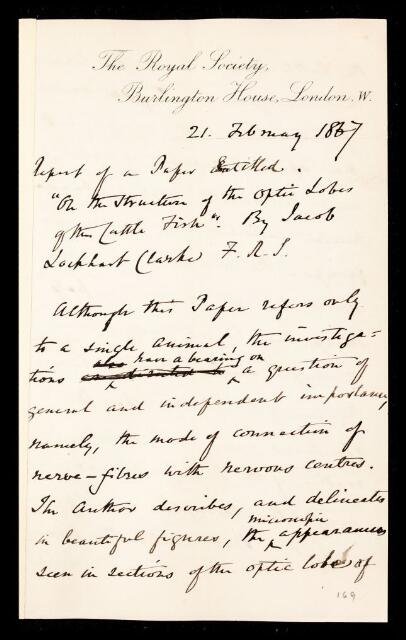 The Royal Society,
Burlington House, London. W.
21. February 1867
Report of a Paper Entitled.
"On the Structure of the Optic Lobes
of the Cuttle Fish". By Jacob
Lockhart Clarke F.R.S.
Although this Paper refers only
to a single animal, the investiga=
also have a bearing on
tions a question of
general and independent importance,
namely, the mode of connection of
nerve-fibres with nervous centres.
The Author describes, and delineates
microscopic
in beautiful figures, the appearances
seen in sections of the optic lobe of
169